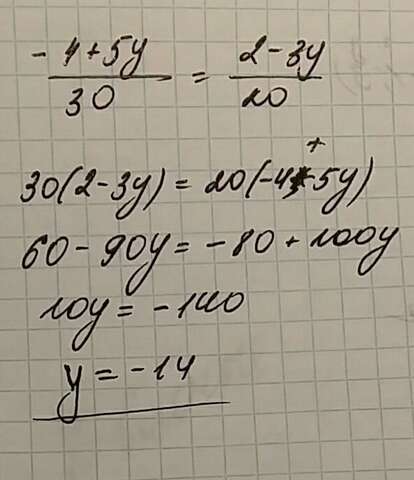 -4+5y/30 = 2-3y/20
30(2-3y) = 20(-4+5y)
60-90y = -80+100y
10y = -140
y = -14